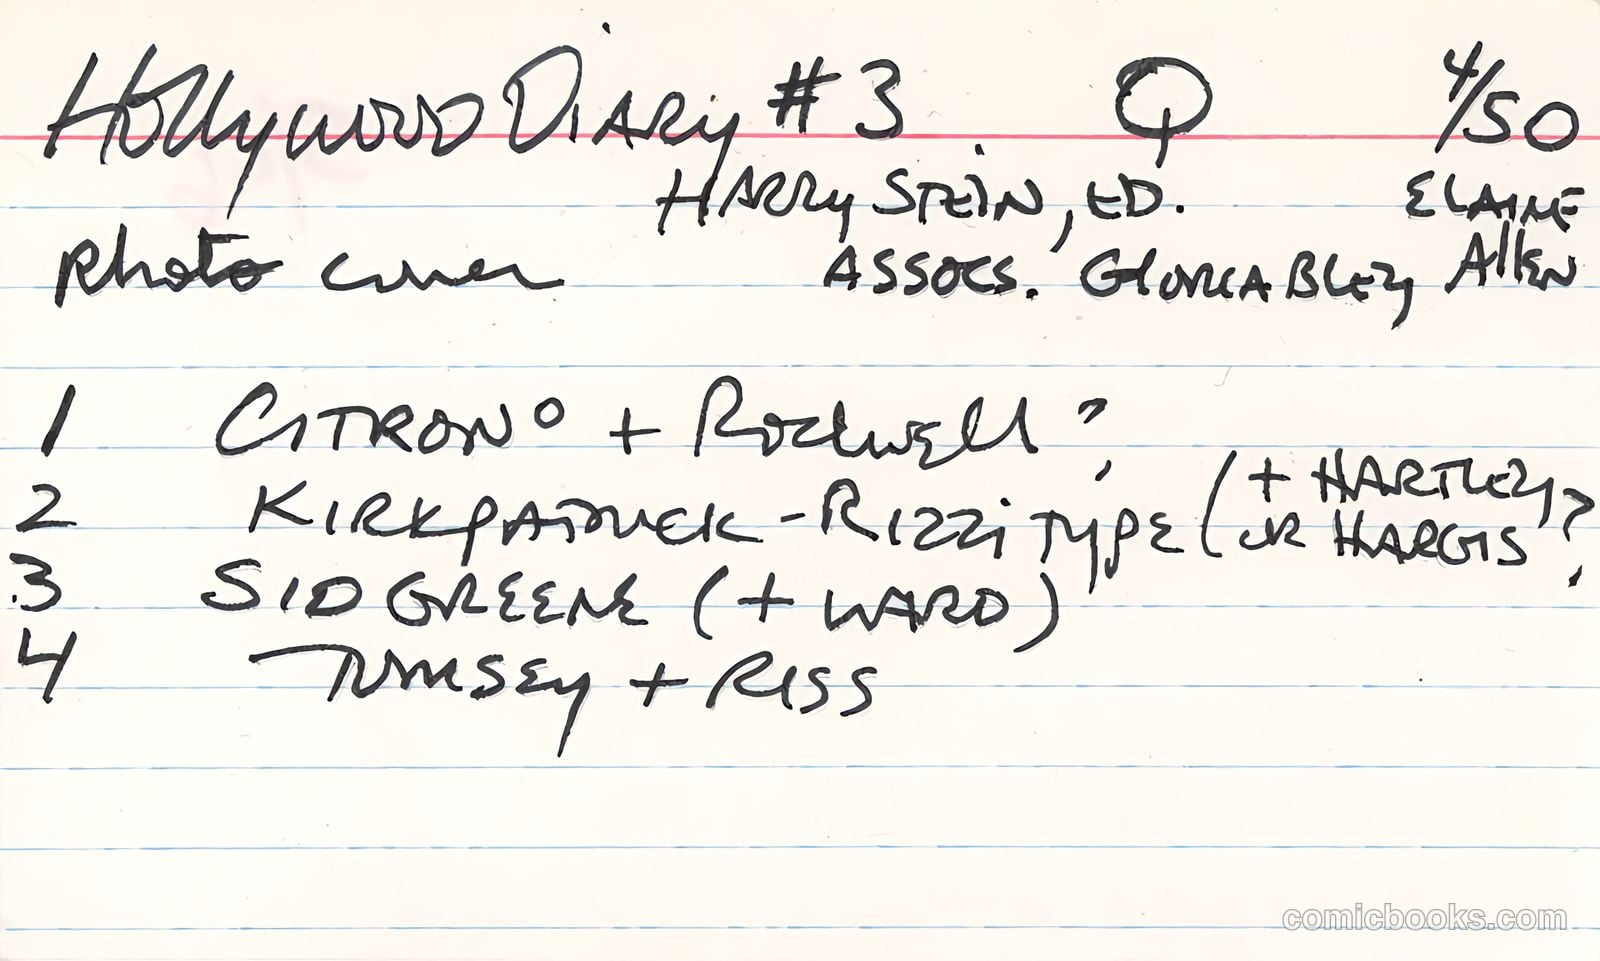 Hollywood Diary #3 Q 4/50
Harry Stein, ED. Elaine
photo cover Assocs. Gloria Bley, Allen
1 Citron° + Rockwell?
(+ Hartley?
2 Kirkpatrick - Rizzi type or Hargis?
3 Sid Greene (+ Ward)
4 Tumsey + Riss
comicbooks.com